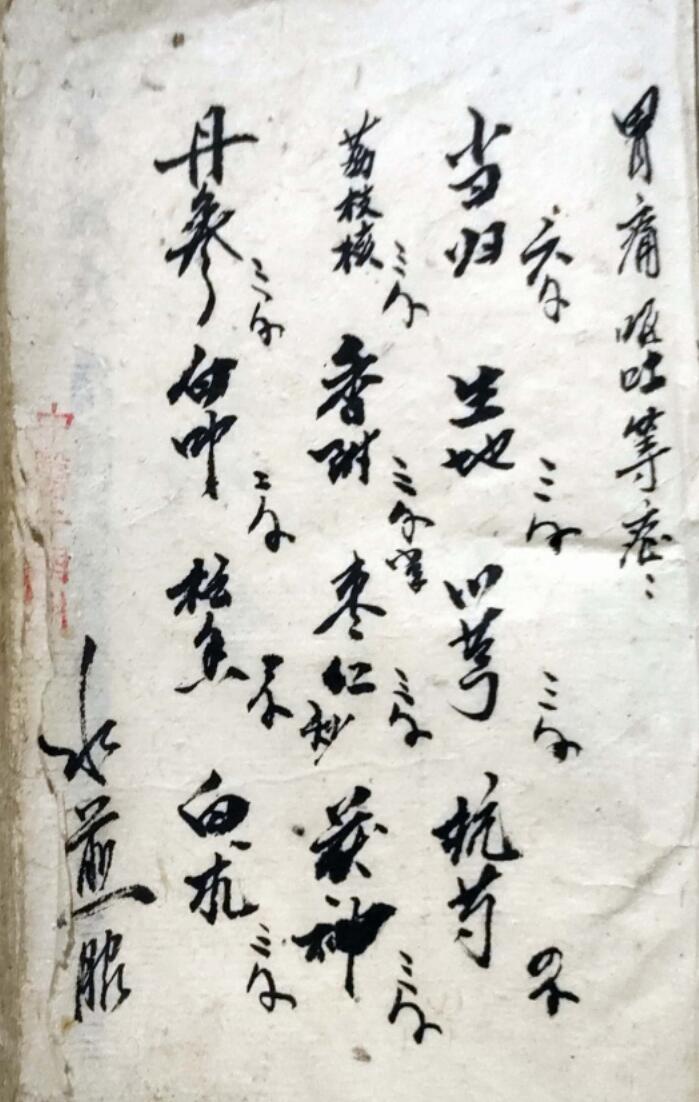 胃痛呕吐等症:
当归 六分 生地 三分 川芎 三分 杭芍 四分
荔枝核 三分 香附 三分 枣仁炒 三分 茯神 三分
丹参 三分 白叩 二分 桂 白杭 三分
水煎服